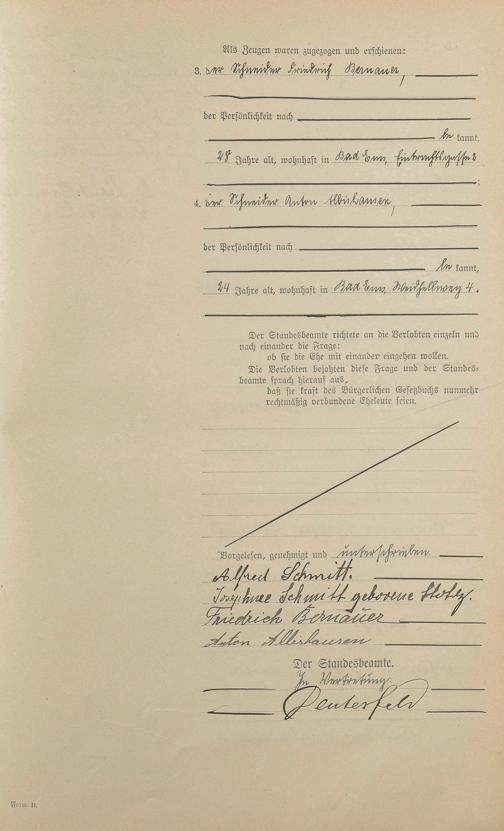 Als Zeugen waren zugezogen und erschienen:
3. der Schneider Friedrich Bernauer,
der Persönlichkeit nach
be kannt,
28 Jahre alt, wohnhaft in Bad Ems, Eintrachtsgasse 3
;
4. der Schneider Anton Albishausen,
der Persönlichkeit nach
be kannt,
24 Jahre alt, wohnhaft in Bad Ems, Weidhellweg 4.
Der Standesbeamte richtete an die Verlobten einzeln und
nach einander die Frage:
ob sie die Ehe mit einander eingehen wollen.
Die Verlobten bejahten diese Frage und der Standes-
beamte sprach hierauf aus,
daß sie kraft des Bürgerlichen Gesetzbuchs nunmehr
rechtmäßig verbundene Eheleute seien.
Vorgelesen, genehmigt und unterschrieben
Alfred Schmitt.
Josephine Schmitt geborene
Friedrich Bernauer
Anton Albishausen
Der Standesbeamte.
In Vertretung
Form. B.